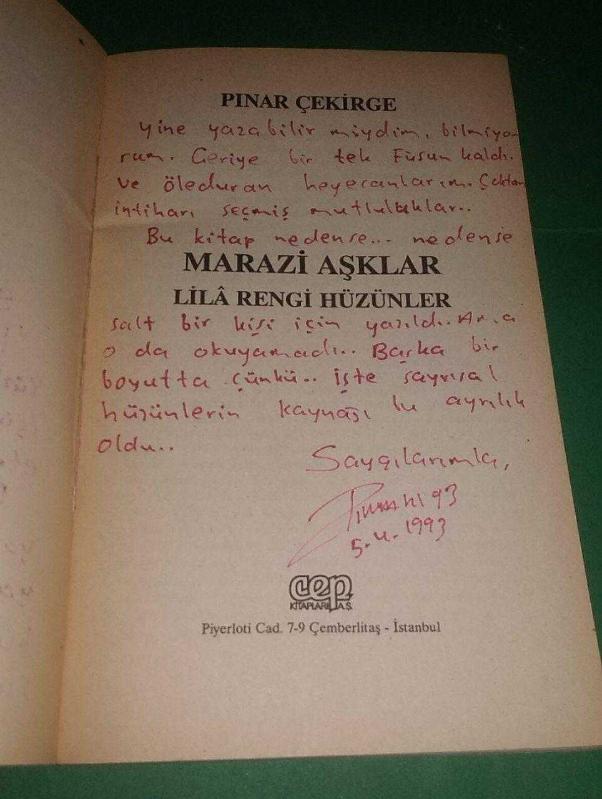 PINAR ÇEKİRGE
Yine yazabilir miydim, bilmiyo-
rum. Geriye bir tek Füsun kaldı.
ve öleduran heyecanlarım. Çoktan
intiharı seçmiş mutluluklar..
Bu kitap nedense... nedense
MARAZİ AŞKLAR
LİLÂ RENGİ HÜZÜNLER
salt bir kişi için yazıldı.. Ama
o da okuyamadı.. Başka bir
boyutta çünkü.. İşte sayrısal
hüzünlerin kaynağı bu ayrılık
oldu..
Saygılarımla,
93
5.4.1993
cep
KİTAPLARI A.Ş.
Piyerloti Cad. 7-9 Çemberlitaş - İstanbul